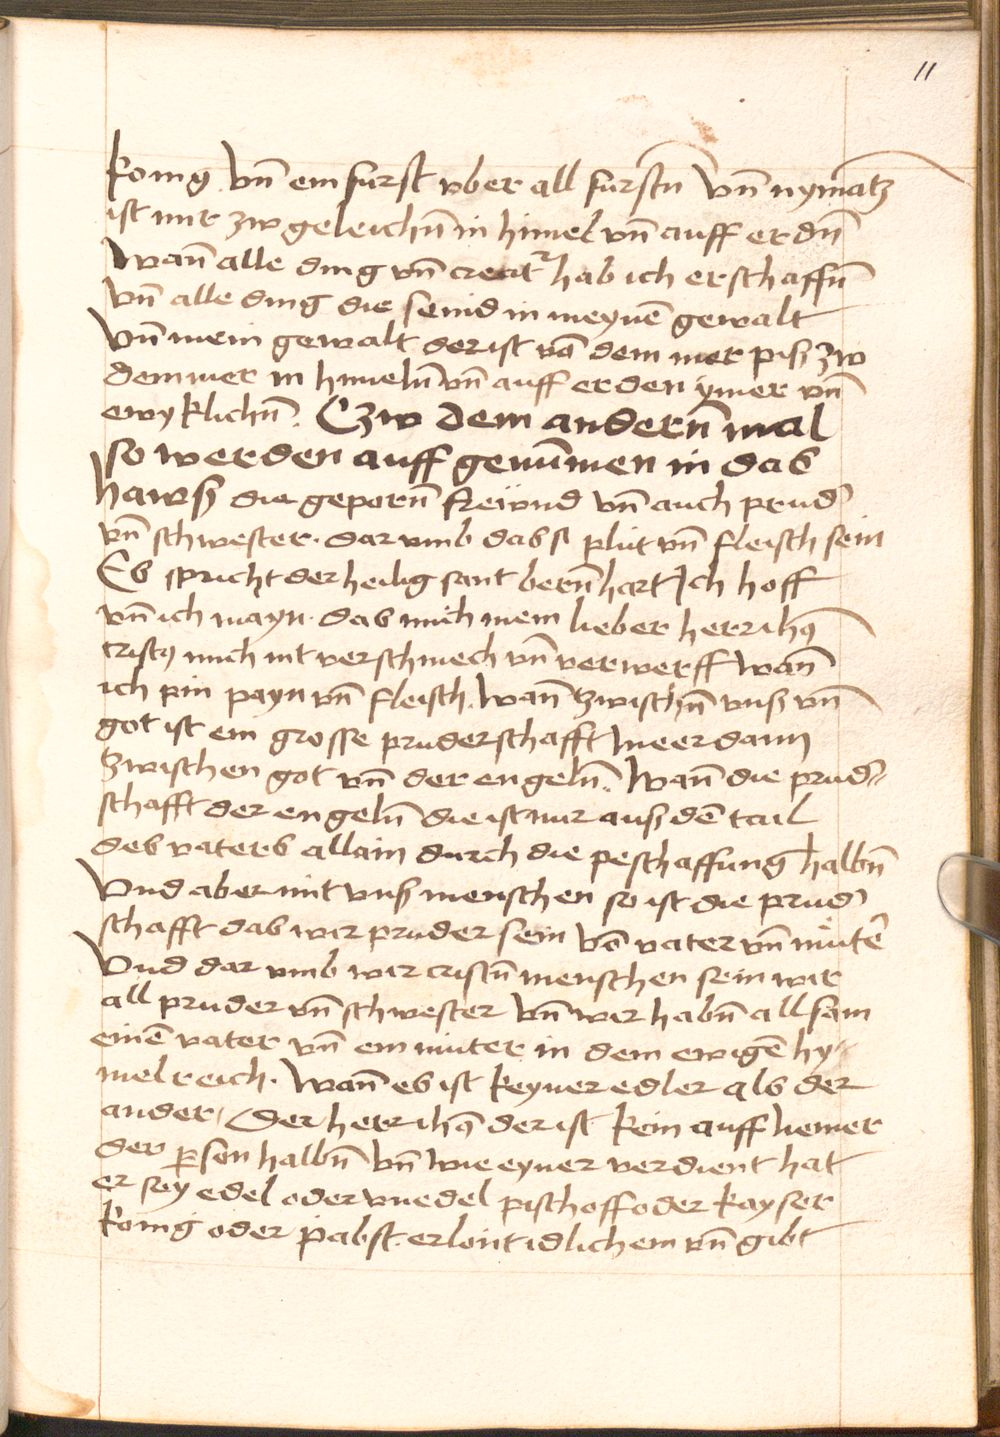 11
konig vn̄ ein furst vber all furstn̄ vn̄ nymatz
ist mir zw geleichn̄ in himel vn̄ auff erdn̄
wan̄ alle ding vn̄ creatᵣ hab ich erschaffn̄
vn̄ alle ding die seind in meynē gewalt
vn̄ mein gewalt der ist vō dem mer piß zw
dem mer in himeln̄ vn̄ auff erden ymer vn̄
ewyklichn̄. Czw dem andern̄ mal
so werden auff genūmen in das
hawß die geporn̄ freẅnd vn̄ auch prudˀ
vn̄ schwester. dar vmb das si plut vn̄ fleisch sein
Es spricht der heilig sant bern̄hart Ich hoff
vn̄ ich mayn. das mich mein lieber herr ihūs
cristꝰ mich nit verschmech vn̄ verwerff wan̄
ich pin payn vn̄ fleisch. wan̄ tzwischn̄ vnß vn̄
got ist ein grosse pruderschafft meer dann
zwischen got vn̄ der engeln̄. wan̄ die prudˀ=
schafft der engeln̄ die ist nur auß dē tail
des vaters allain durch die peschaffung halbn̄
Vnd aber mit vnß menschen so ist die prudˀ
schafft das wir pruder sein vō vater vn̄ můterˀ
Vnd dar vmb wir cristn̄ menschen sein wir
all pruder vn̄ schwester vn̄ wir habn̄ all sam
einē vater vn̄ ein můter in dem ewigē hy=
melreich. wan̄ es ist keyner edler als der
ander / der herr ihūs der ist kein auff nemer
der ꝑson halbn̄ vn̄ wie eyner verdient hat
er sey edel oder vnedel pischoff oder kayser
konig oder pabst. er lont idlichem vn̄ gibt